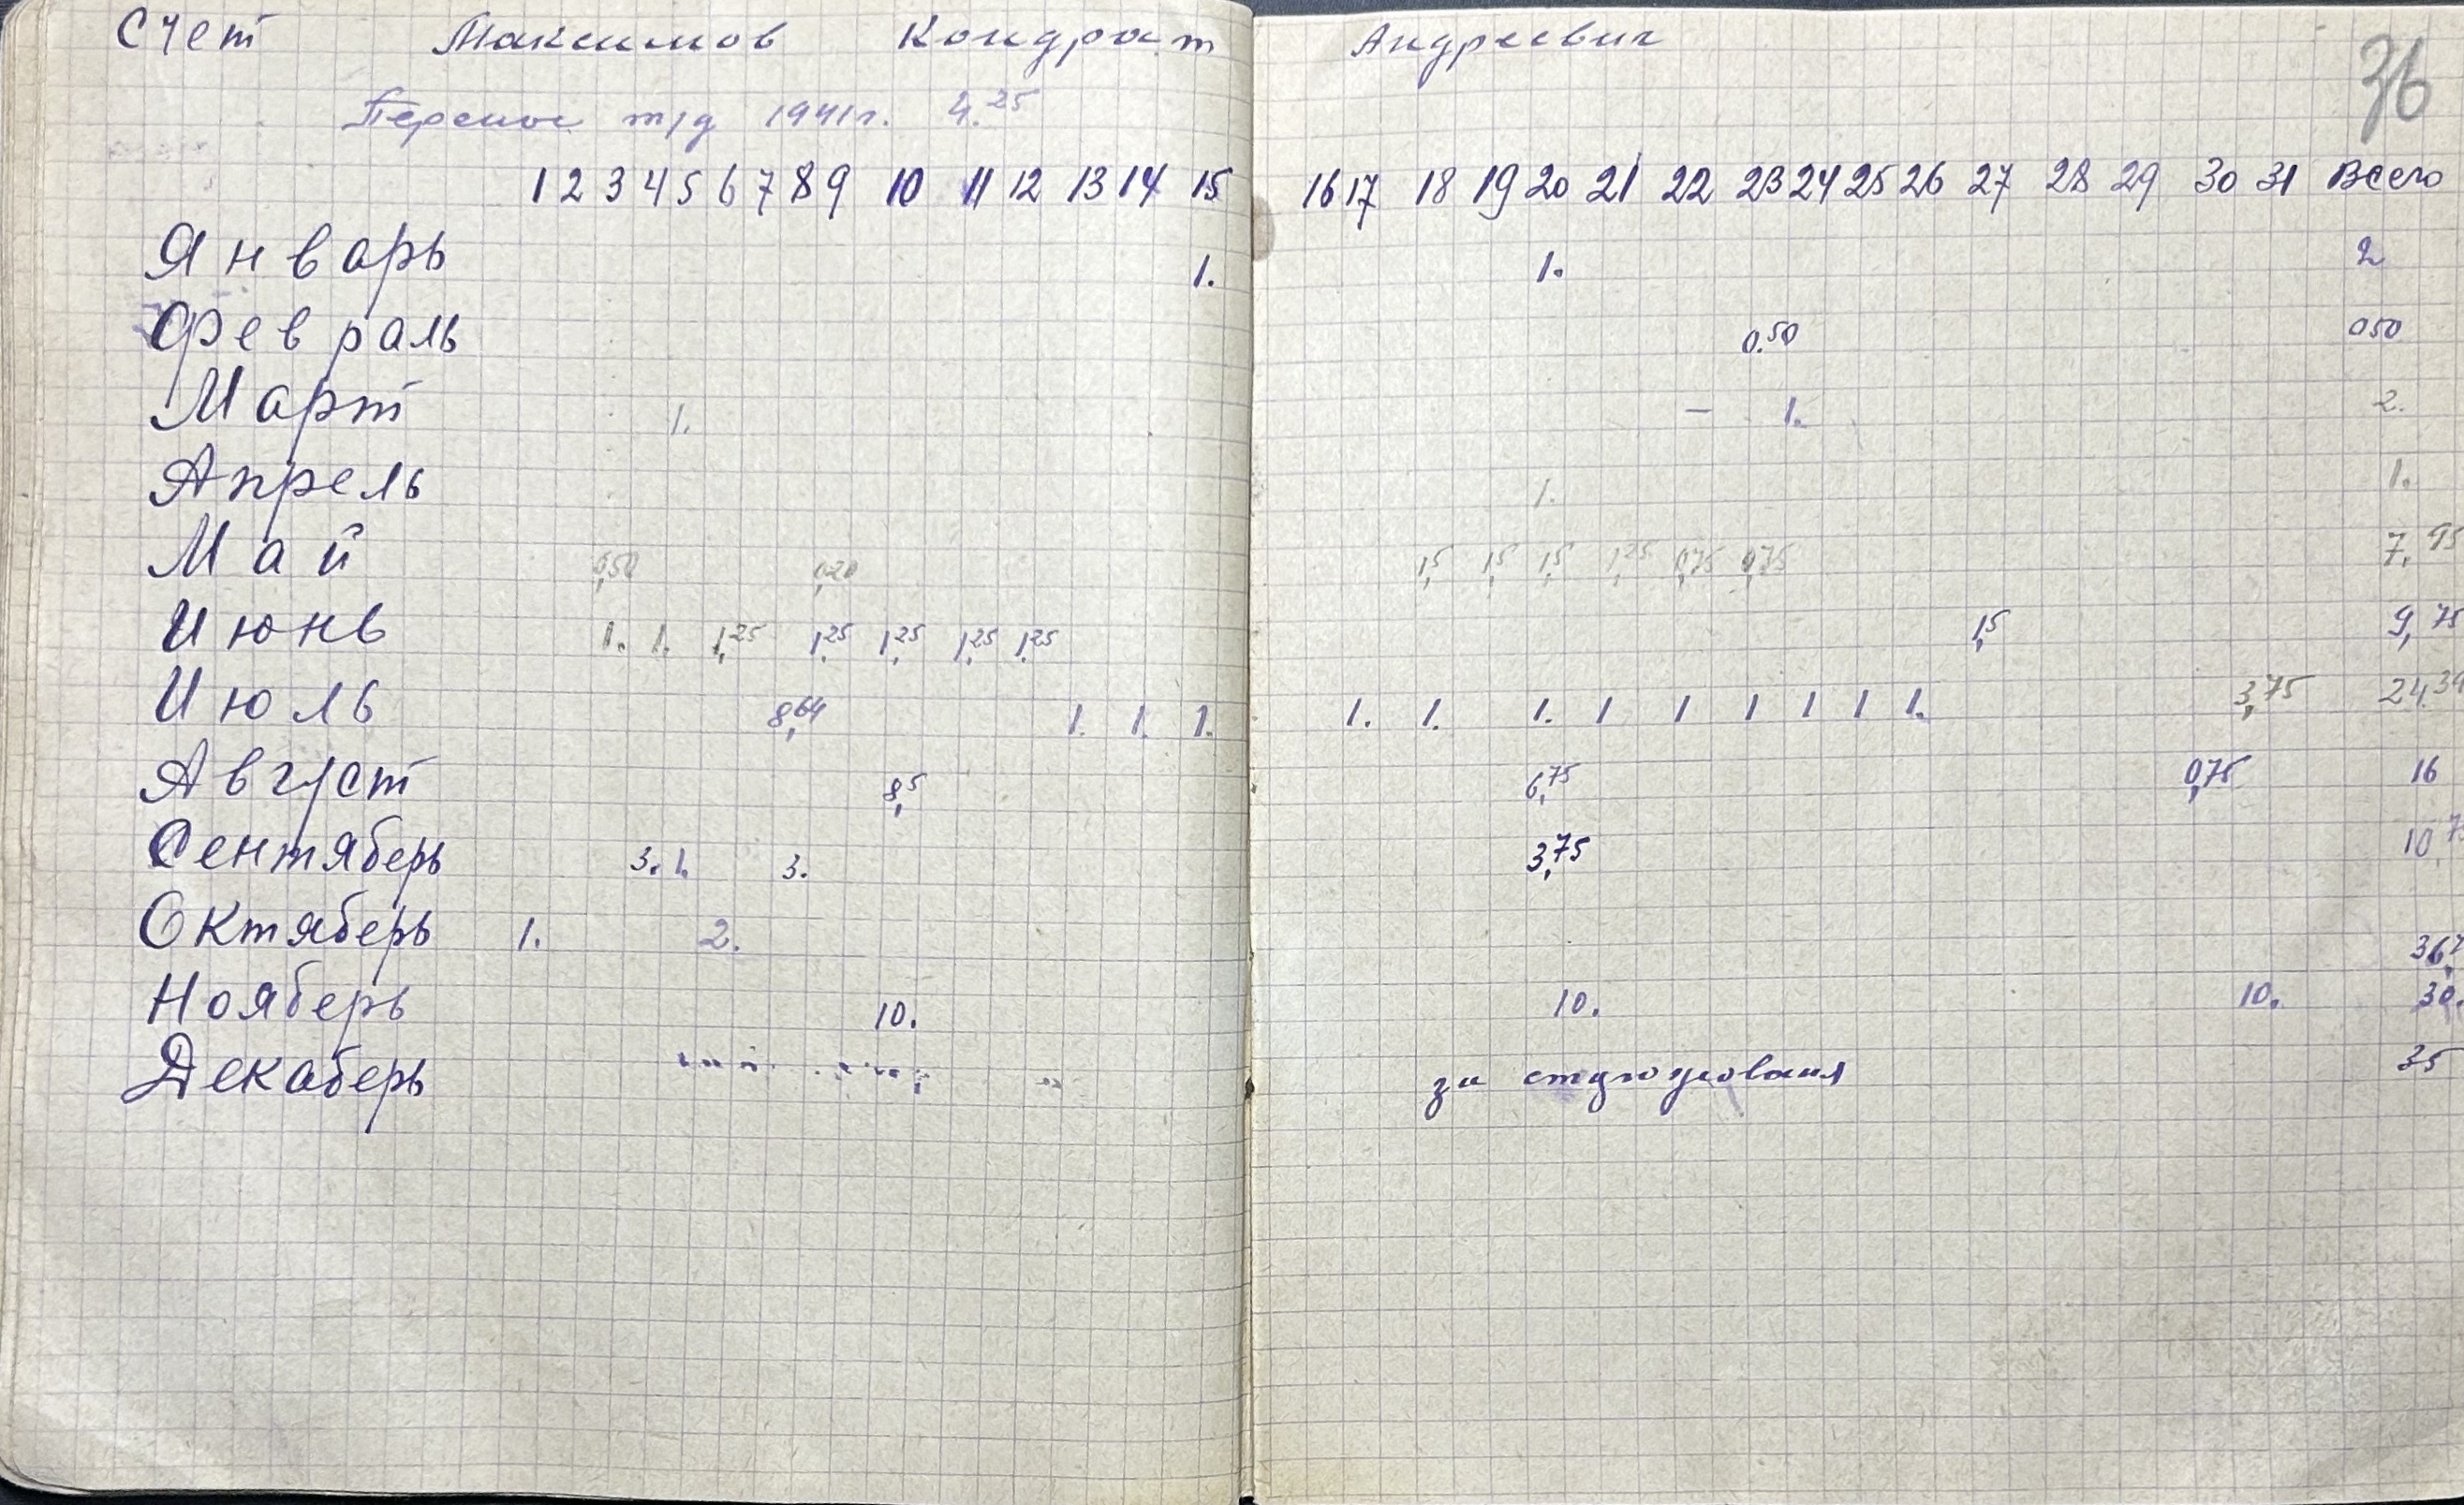 Счет Максимов Кондрат Андреевич
36
Перенос т/д 1941г. 4.25
1 2 3 4 5 6 7 8 9 10 11 12 13 14 15 16 17 18 19 20 21 22 23 24 25 26 27 28 29 30 31 Всего
Январь 1. 1. 2
Февраль 0.50 050
Март 1. – 1. 2.
Апрель 1. 1.
Май 0,50 0,20 1,5 1,5 1,5 1,25 0,75 0,75 7,95
Июнь 1. 1. 1,25 1,25 1,25 1,25 1,25 1,5 9,75
Июль 8,64 1. 1. 1. 1. 1. 1. 1 1 1 1 1 1. 3,75 24.39
Август 8,5 6,75 0,75 16
Сентяберь 3. 1. 3. 3,75 10,75
Октяберь 1. 2. 36,7
Нояберь 10. 10. 10. 30.
Декаберь за 35